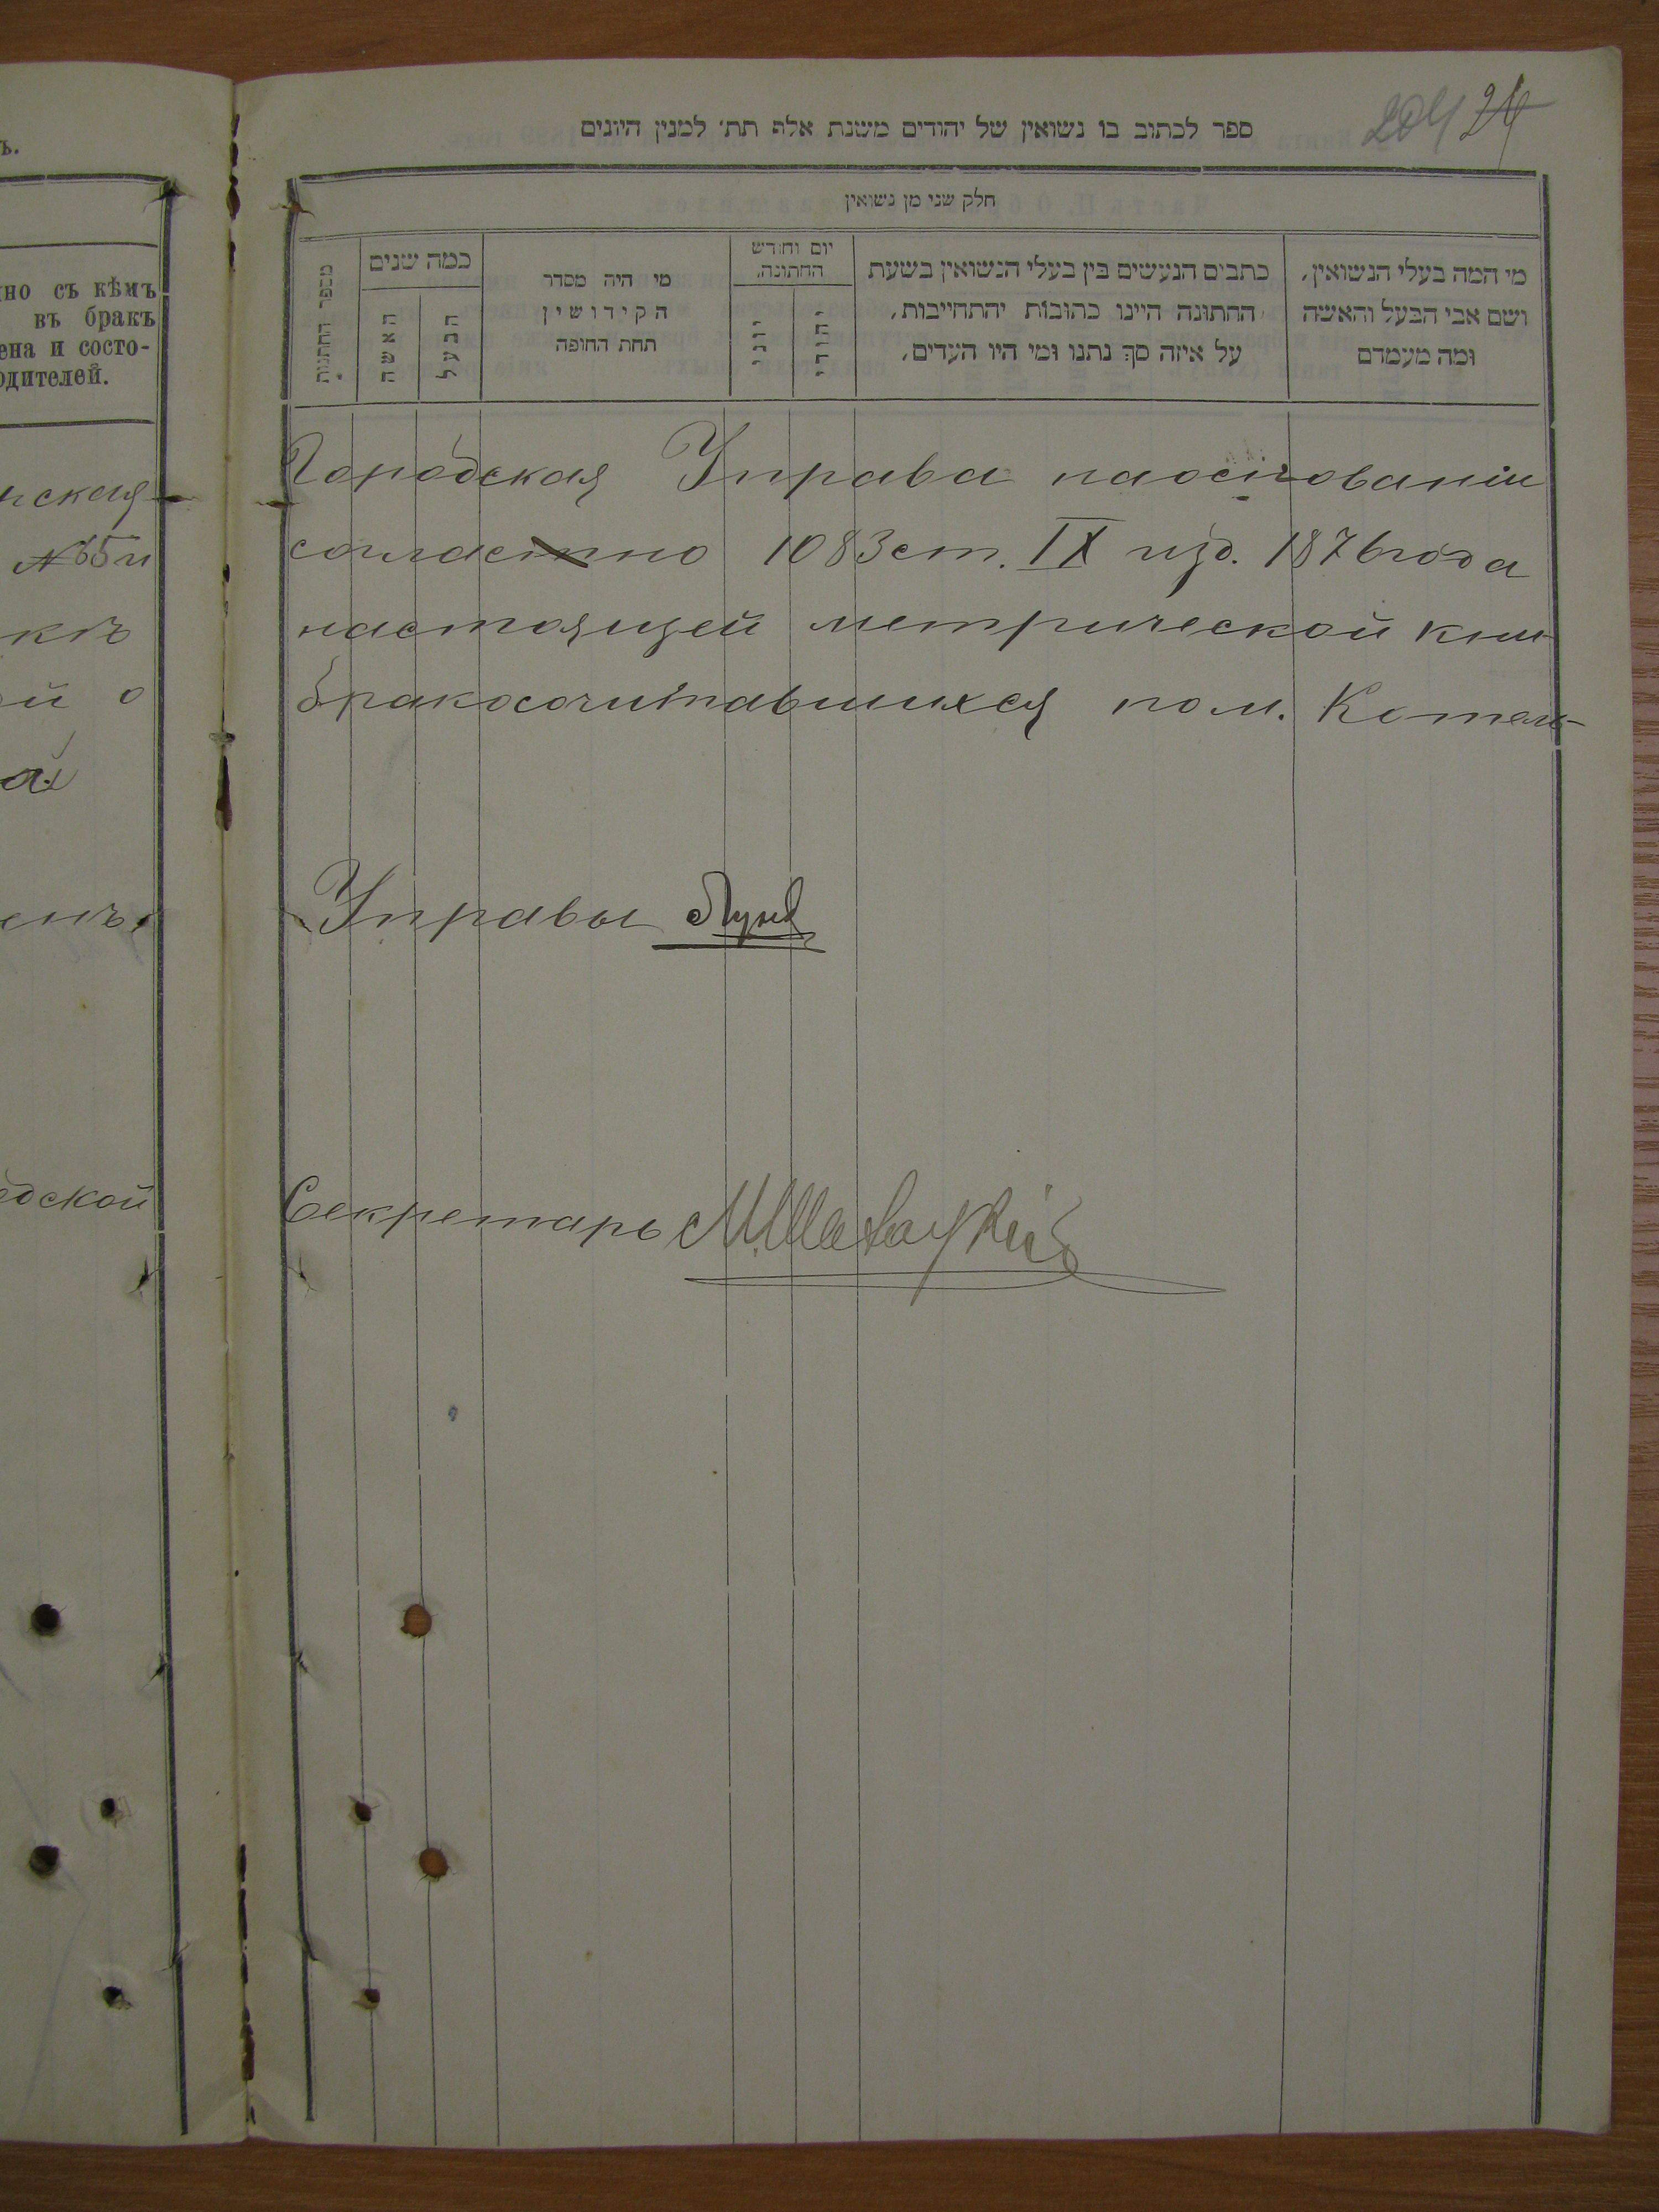 ъ.
но съ кѣмъ
въ бракъ
ена и состо-
одителей.
нская
№ 65 и
къ
ей о
енъ
одской
204 24
ספר לכתוב בו נשואין של יהודים משנת אלף תת׳ למנין היונים
חלק שני מן נשואין
מספר החתונות
כמה שנים
האשה
הבעל
מי היה מסדר
הקידושין
תחת החופה
יום וחודש
החתונה.
יוני
יהודי
כתבים הנעשים בין בעלי הנשואין בשעת
החתונה היינו כתובות יהתחייבות,
על איזה סך נתנו ומי היו העדים,
מי המה בעלי הנשואין,
ושם אבי הבעל והאשה
ומה מעמדם
Городская Управа наосновании
согластно 1083 ст. IX изд. 1876 года
настоящей метрической кни-
бракосочитавшихся по м. Котель-
Управы
Секретарь